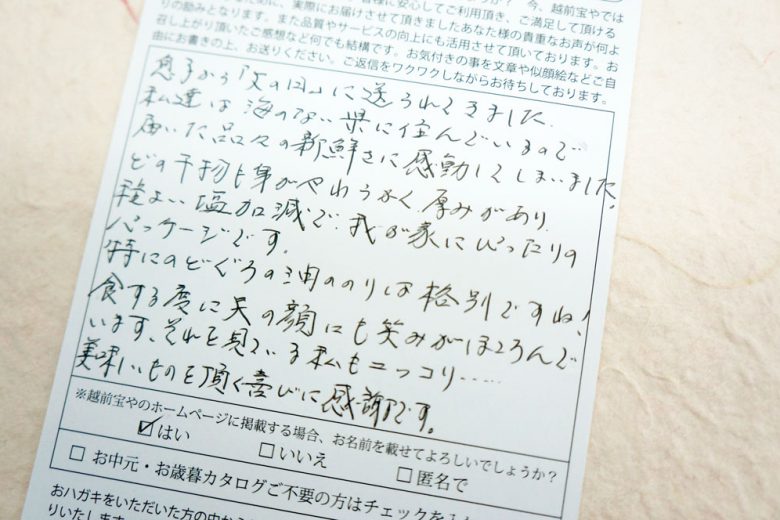 に安心してご利用頂き、ご満足して頂ける
実際にお届けさせて頂きましたあなた様の貴重なお声が何よ
りの励みとなります。また品質やサービスの向上にも活用させて頂いております。お
召し上がり頂いたご感想など何でも結構です。お気付きの事を文章や似顔絵などご自
由にお書きの上、お送りください。ご返信をワクワクしながらお待ちしております。
息子から「父の日」に送られてきました。
私達は海のない県に住んでいるので、
届いた品々の新鮮さに感動してしまいました。
どの干物も身がやわらかく、厚みがあり、
程よい塩加減で、我が家にぴったりの
パッケージです。
特にのどぐろの油ののりは格別ですね!
食する度に夫の顔にも笑みがほころんで
います、それを見ている私もニッコリ……
美味しいものを頂く喜びに感謝です。
※越前宝やのホームページに掲載する場合、お名前を載せてよろしいでしょうか?
☑はい □いいえ □匿名で
□ お中元・お歳暮カタログご不要の方はチェックを
おハガキをいただいた方の中から
りいたします